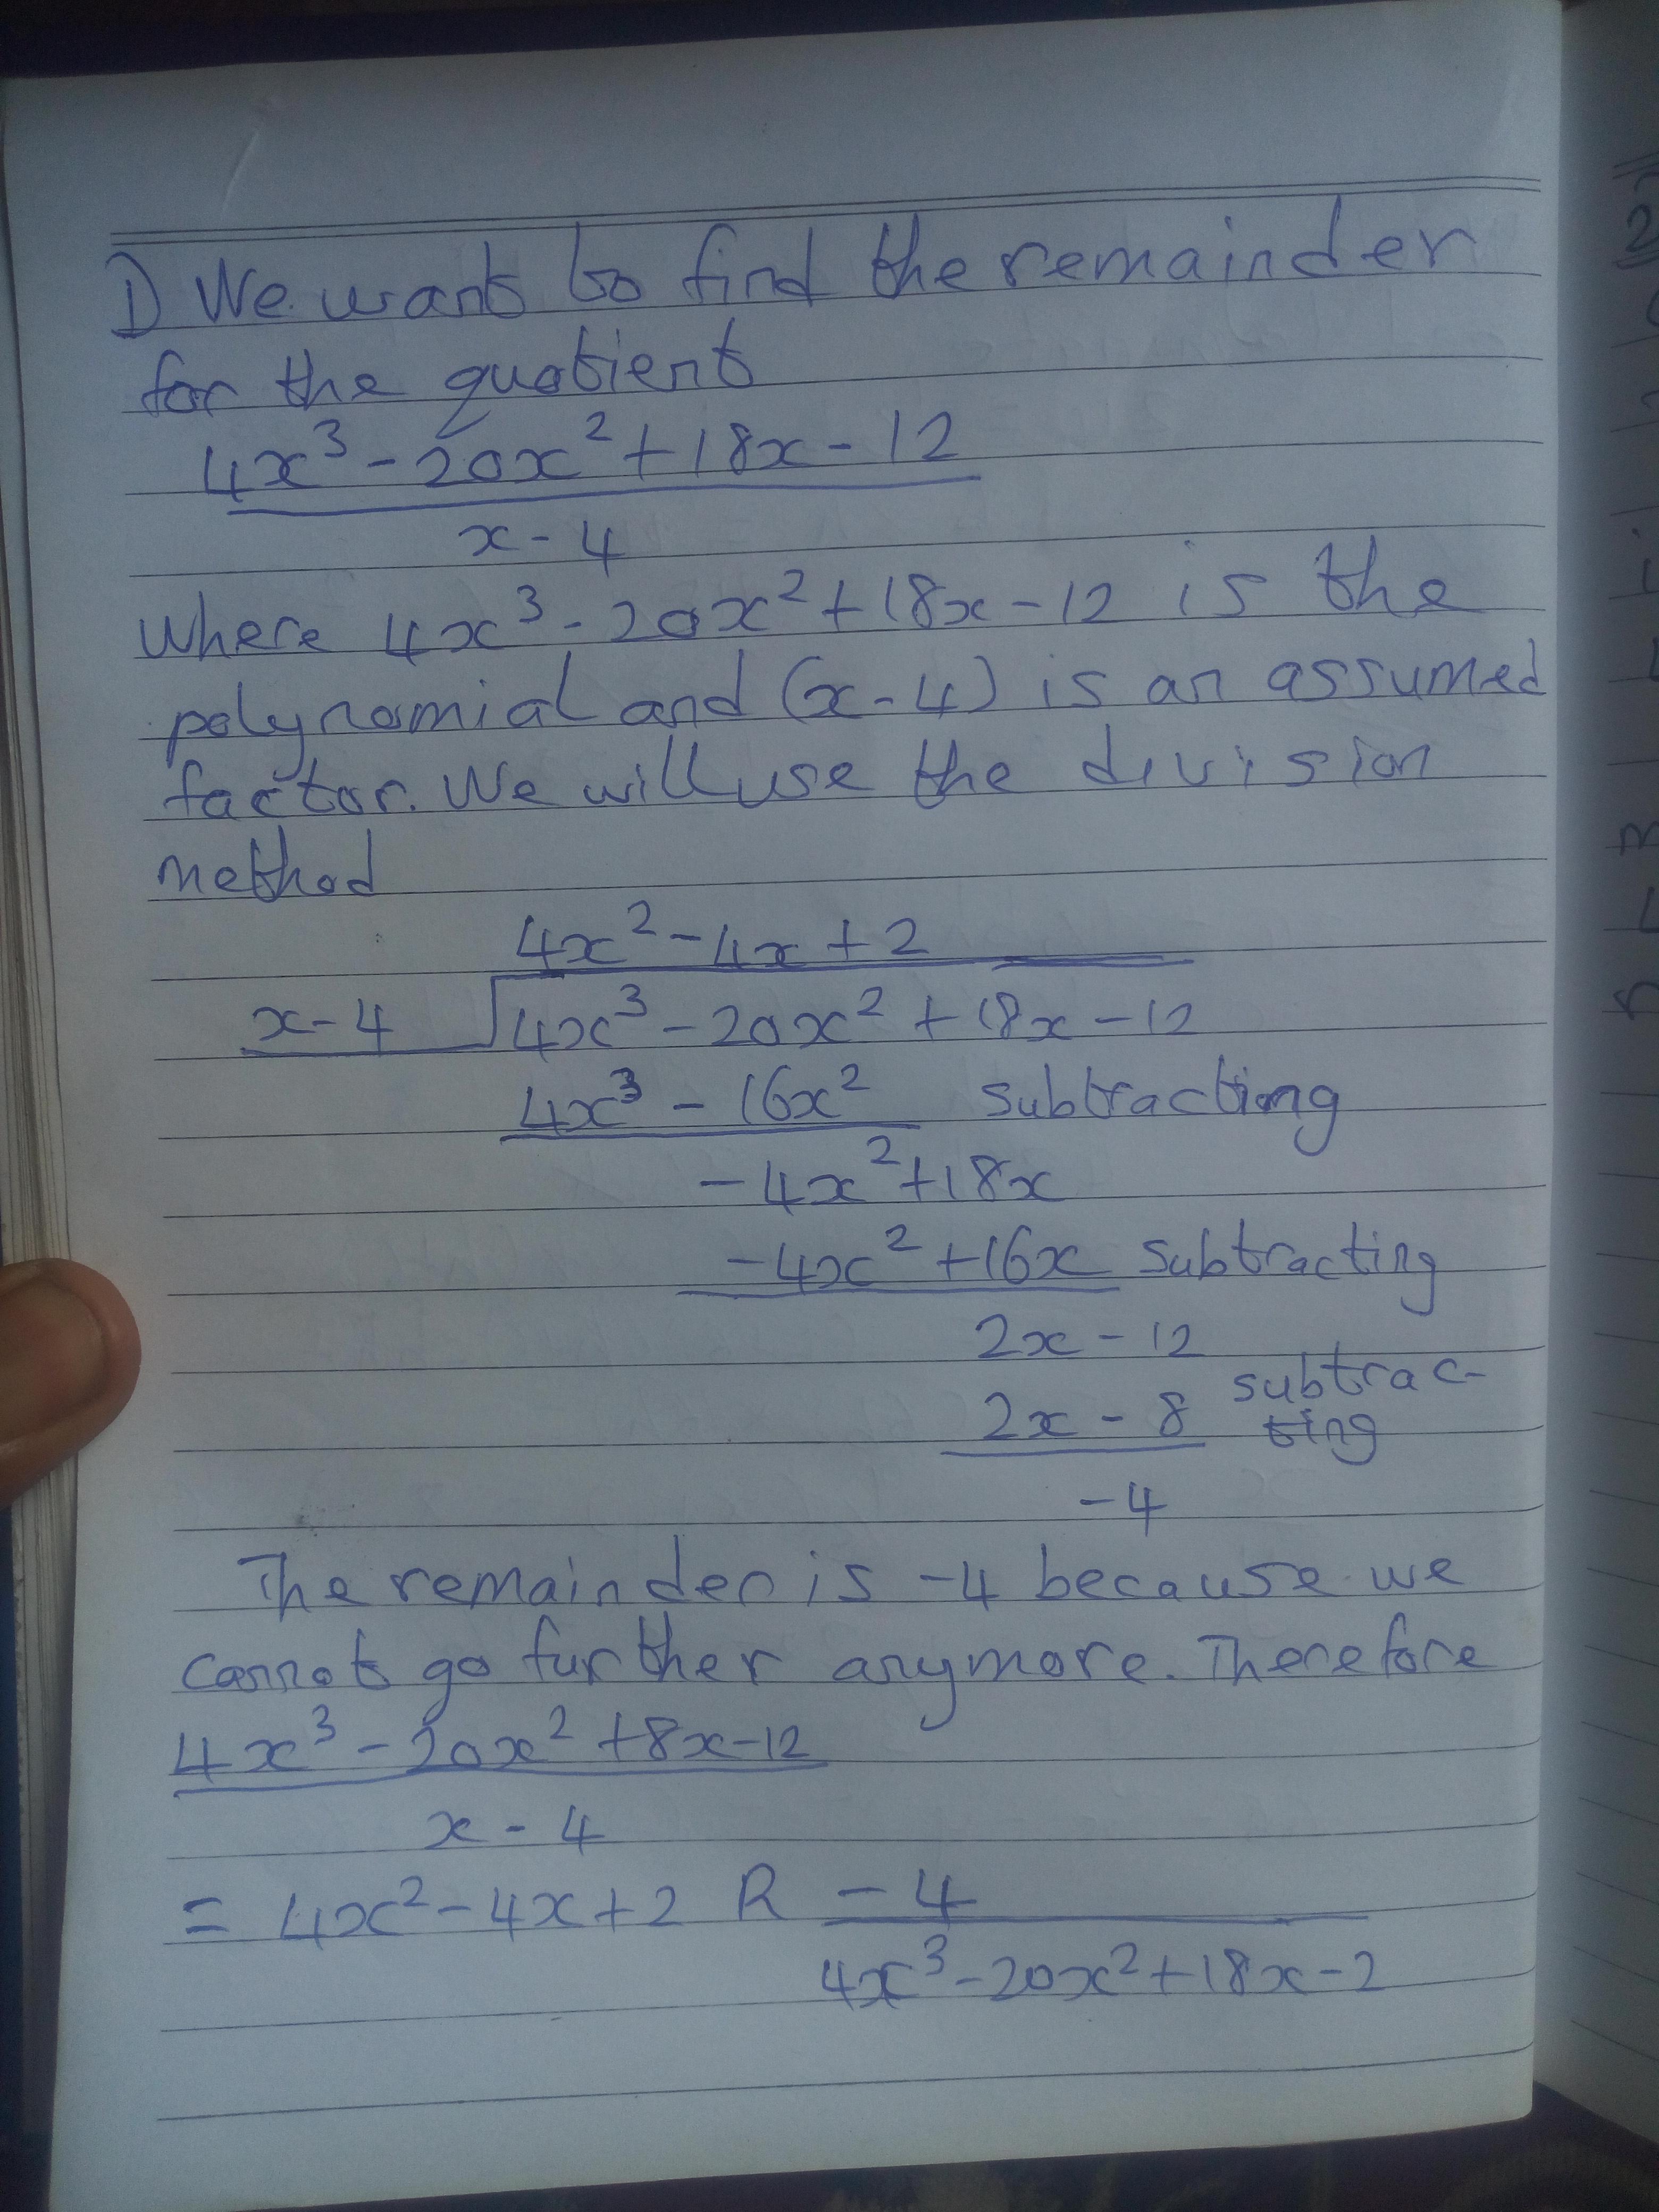 1) We want to find the remainder
for the quotient
4x³ - 20x² + 18x - 12
x - 4
Where 4x³ - 20x² + 18x - 12 is the
polynomial and (x - 4) is an assumed
factor. We will use the division
method
4x² - 4x + 2
x - 4 4x³ - 20x² + 18x - 12
4x³ - 16x² subtracting
- 4x² + 18x
- 4x² + 16x subtracting
2x - 12
2x - 8 subtrac-
ting
- 4
The remainder is -4 because we
cannot go further anymore. Therefore
4x³ - 20x² + 8x - 12
x - 4
= 4x² - 4x + 2 R - 4
4x³ - 20x² + 18x - 2